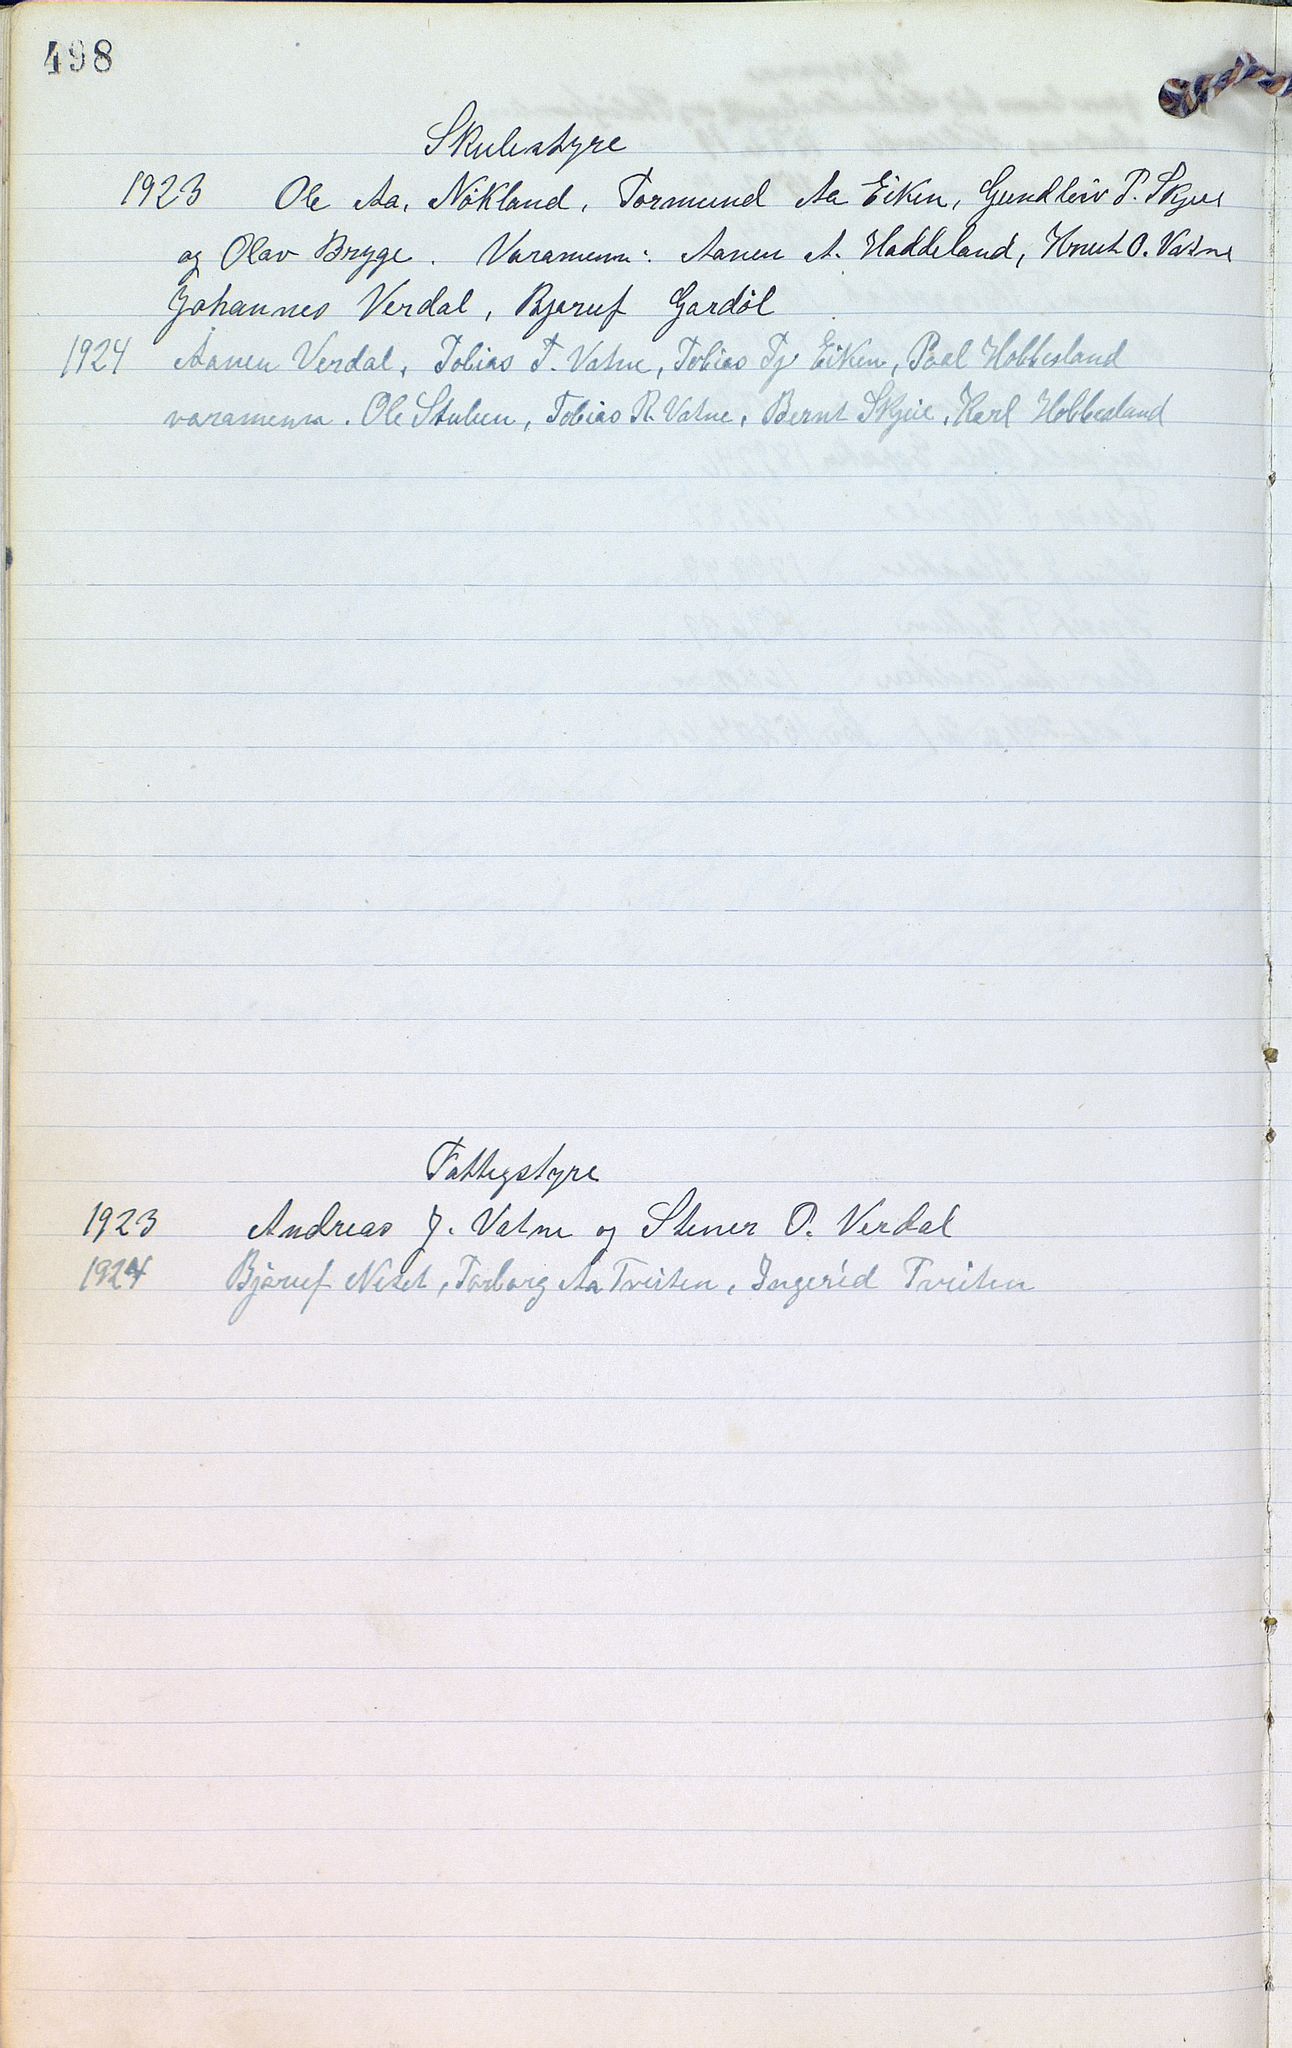 498
Skulestyre
1923 Ole Aa. Nökland, Tormund Aa Eiken, Gundleiv P. Skjeie
og Olav Bryge. Varamenn: Aanen A. Haddeland, Knut O. Vatne
Johannes Verdal, Bjoruf Gardöl
1924 Aanen Verdal, Tobias T. Vatne, Tobias Tj Eiken, Paal Hobbesland
varamenn. Ole Stulen, Tobias R. Vatne, Bernt Skjeie, Karl Hobbesland
Fattigstyre
1923 Andreas J. Vatne og Stener O. Verdal
1924 Bjoruf Neset, Torborg Aa Tveiten, Ingerid Tveiten